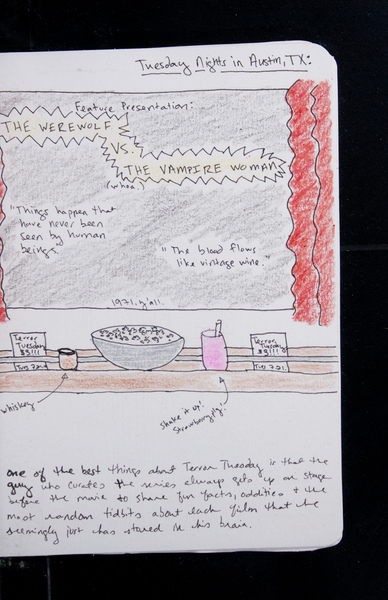 Tuesday Nights in Austin, TX:
Feature Presentation:
THE WEREWOLF
VS.
THE VAMPIRE WOMAN
(whoa.)
"Things happen that
have never been
seen by human
beings."
"The blood flows
like vintage wine."
1971, y'all.
Terror
Tuesday
$3!!!
Tues. 7.21.
Terror
Tuesday
$3!!!
Tues. 7.21.
whiskey
shake it up!
strawberry!
one of the best things about Terror Tuesday is that the
guy who curates the series always gets up on stage
before the movie to share fun facts, oddities & the
most random tidbits about each film that he
seemingly just has stored in his brain.